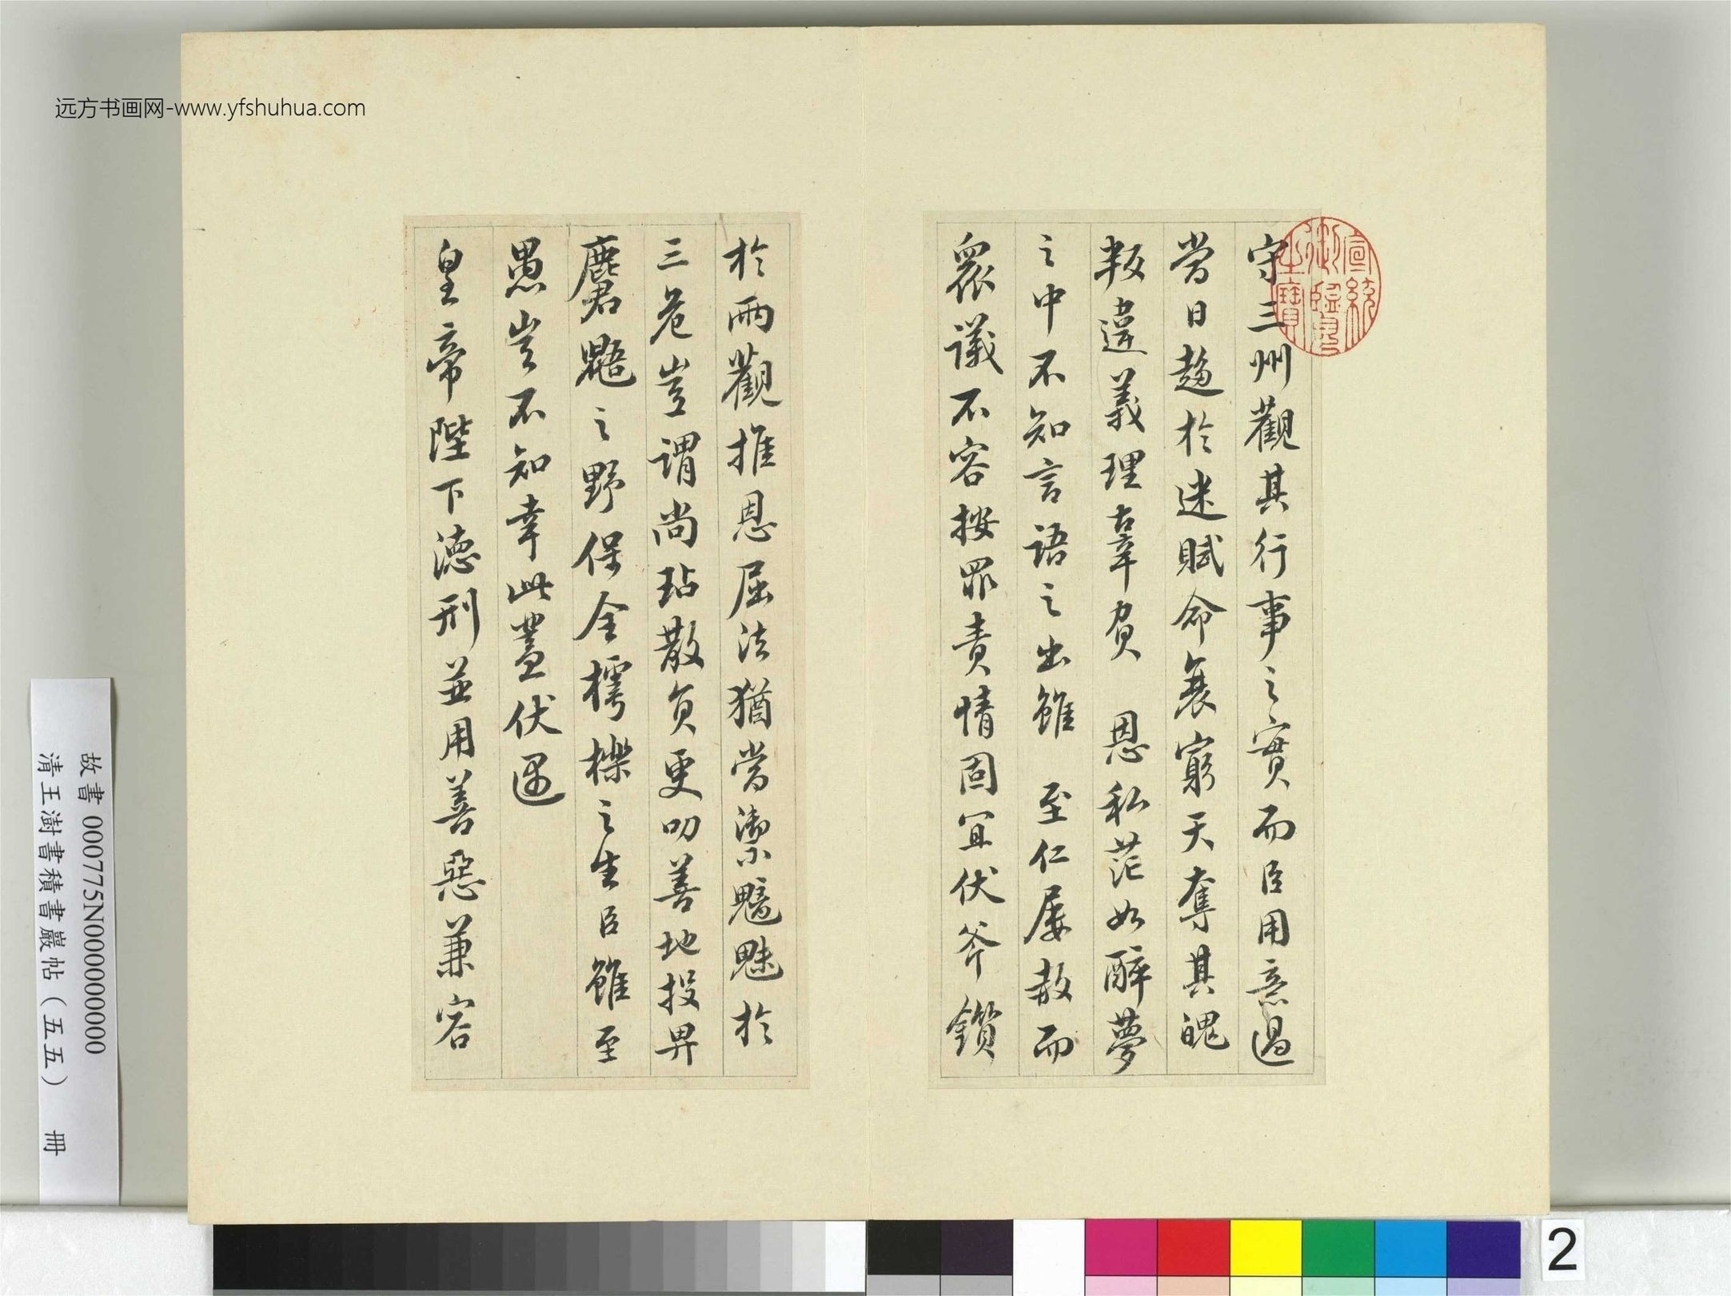 远方书画网-www.yfshuhua.com
宣統
御覽
之寶
守三州觀其行事之實而臣用意過
當日趨於迷賦命衰窮天奪其魄
叛違義理辜負 恩私茫如醉夢
之中不知言語之出雖 至仁屢赦而
衆議不容按罪責情固宜伏斧鑕
於兩觀推恩屈法猶當禦魑魅於
三危豈謂尚玷散員更叨善地投畀
麏鼯之野保全樗櫟之生臣雖至
愚豈不知幸此蓋伏遇
皇帝陛下德刑並用善惡兼容
故書 000775N000000000
清王澍書積書巖帖（五五） 冊
2